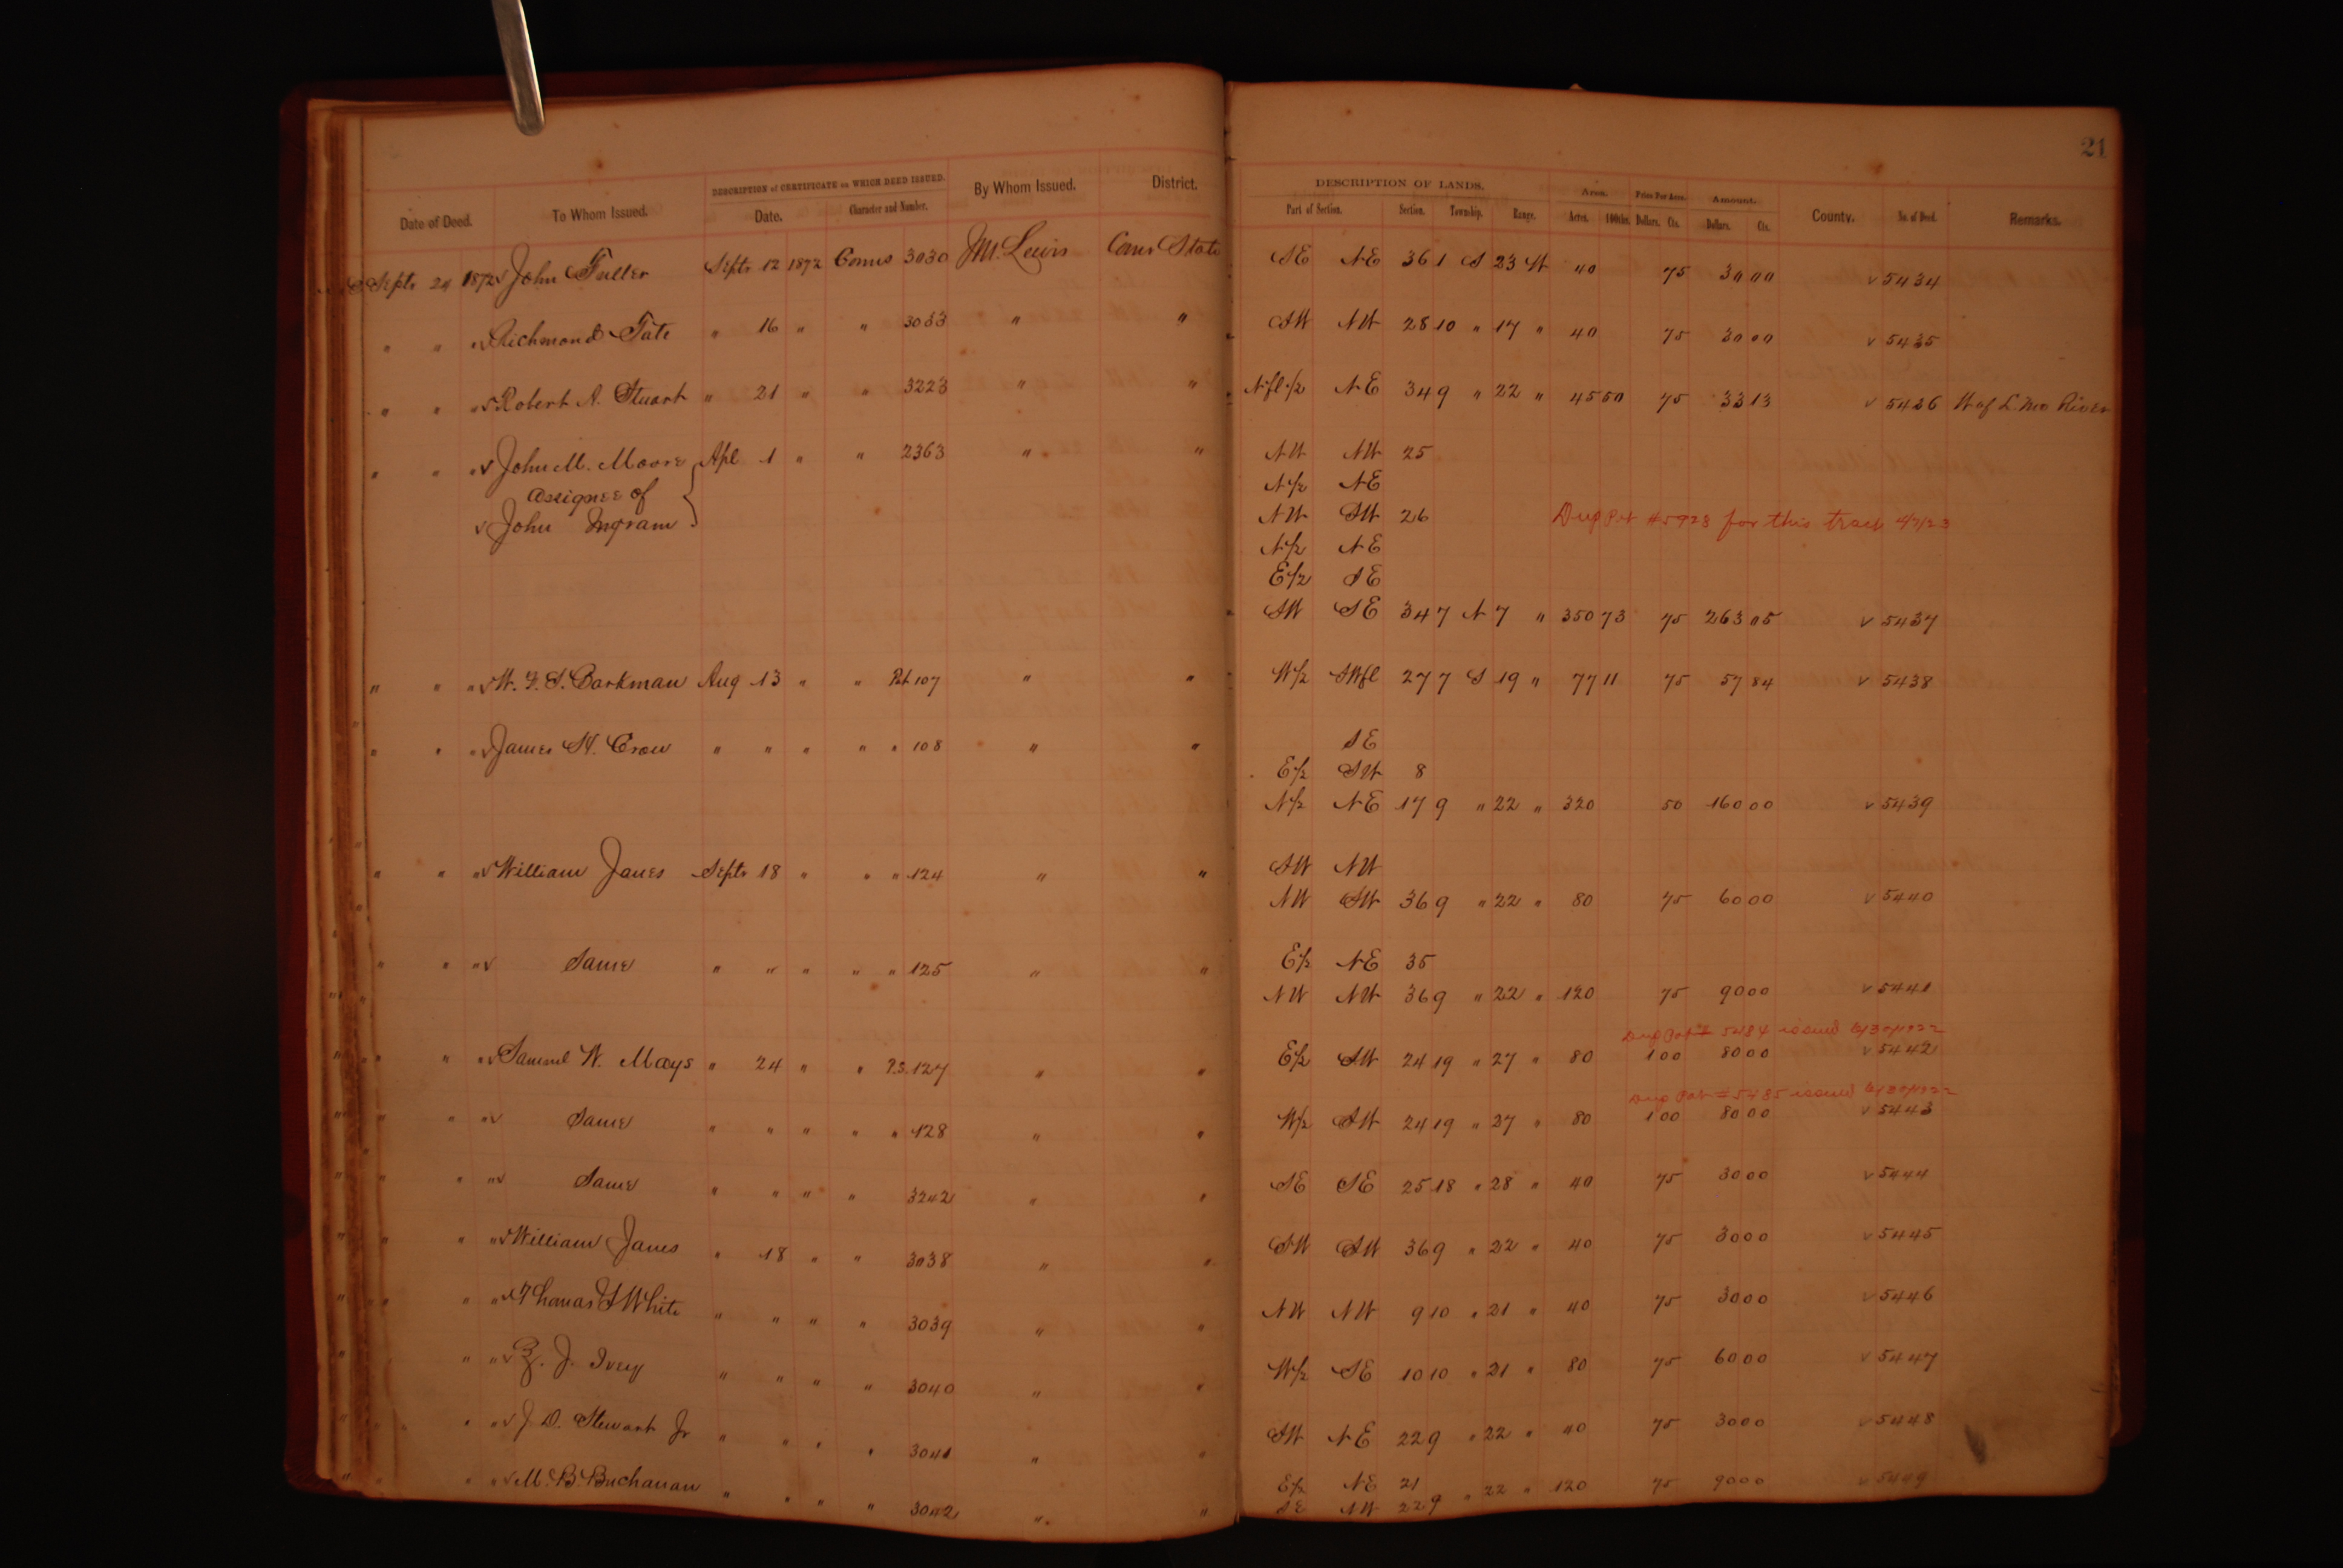 21
DESCRIPTION of CERTIFICATE on WHICH DEED ISSUED. DESCRIPTION OF LANDS. Area. Price Per Acre. Amount.
Date of Deed. To Whom Issued. Date. Character and Number. By Whom Issued. District. Part of Section. Section. Township. Range. Acres. 100ths. Dollars. Cts. Dollars. Cts. County. No. of Deed. Remarks.
Septr 24 1872 v John Fuller Septr 12 1872 Comrs 3030 JM. Lewis Comr State SE NE 36 1 S 23 W 40 75 30 00 v 5434
" " " v Richmond Tate " 16 " " 3033 " " SW NW 28 10 " 17 " 40 75 30 00 v 5435
" " " v Robert A. Stuart " 21 " " 3223 " " N fl 1/2 NE 34 9 " 22 " 44 50 75 33 13 v 5436 W of L. Mo River
" " " v John M. Moore Apl 1 " " 2363 " " NW NW 25
assignee of N 1/2 NE
v John Ingram NW SW 26 Dup Pat #5928 for this tract
N 1/2 NE
E 1/2 SE
SW SE 34 7 N 7 " 350 73 75 263 05 v 5437
" " " v W. F. S. Barkman Aug 13 " " Pat 107 " " W 1/2 SW fl 27 7 S 19 " 77 11 75 57 84 v 5438
" " " v James H. Crow " " " " " 108 " " SE
E 1/2 SW 8
N 1/2 NE 17 9 " 22 " 320 50 160 00 v 5439
" " " v William Janes Septr 18 " " " 124 " " SW NW
NW SW 36 9 " 22 " 80 75 60 00 v 5440
" " " v Same " " " " " 125 " " E 1/2 NE 35
NW NW 36 9 " 22 " 120 75 90 00 v 5441
Dup Pat # 5484 issued 6/30/1922
" " " v Samuel W. Mays " 24 " " P.S. 127 " " E 1/2 SW 24 19 " 27 " 80 1 00 80 00 v 5442
Dup Pat # 5485 issued 6/30/1922
" " " v Same " " " " " 128 " " W 1/2 SW 24 19 " 27 " 80 1 00 80 00 v 5443
" " " v Same " " " " 3242 " " SE SE 25 18 " 28 " 40 75 30 00 v 5444
" " " v William Janes " 18 " " 3038 " " SW SW 36 9 " 22 " 40 75 30 00 v 5445
" " " v Thomas J White " " " " 3039 " " NW NW 9 10 " 21 " 40 75 30 00 v 5446
" " " v Z. J. Ivey " " " " 3040 " " W 1/2 SE 10 10 " 21 " 80 75 60 00 v 5447
" " " v J D. Stewart Jr " " " " 3041 " " SW NE 22 9 " 22 " 40 75 30 00 v 5448
" " " v M. B. Buchanan " " " " 3042 " " E 1/2 NE 21 " 22 " 120 75 90 00 v 5449
SE NW 22 9